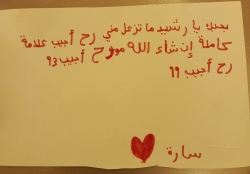 بحبك يا رشيد ما تزعل مني رح أجيب علامة
كاملة إن شاء الله مو رح أجيب 93
رح أجيب 99
سارة